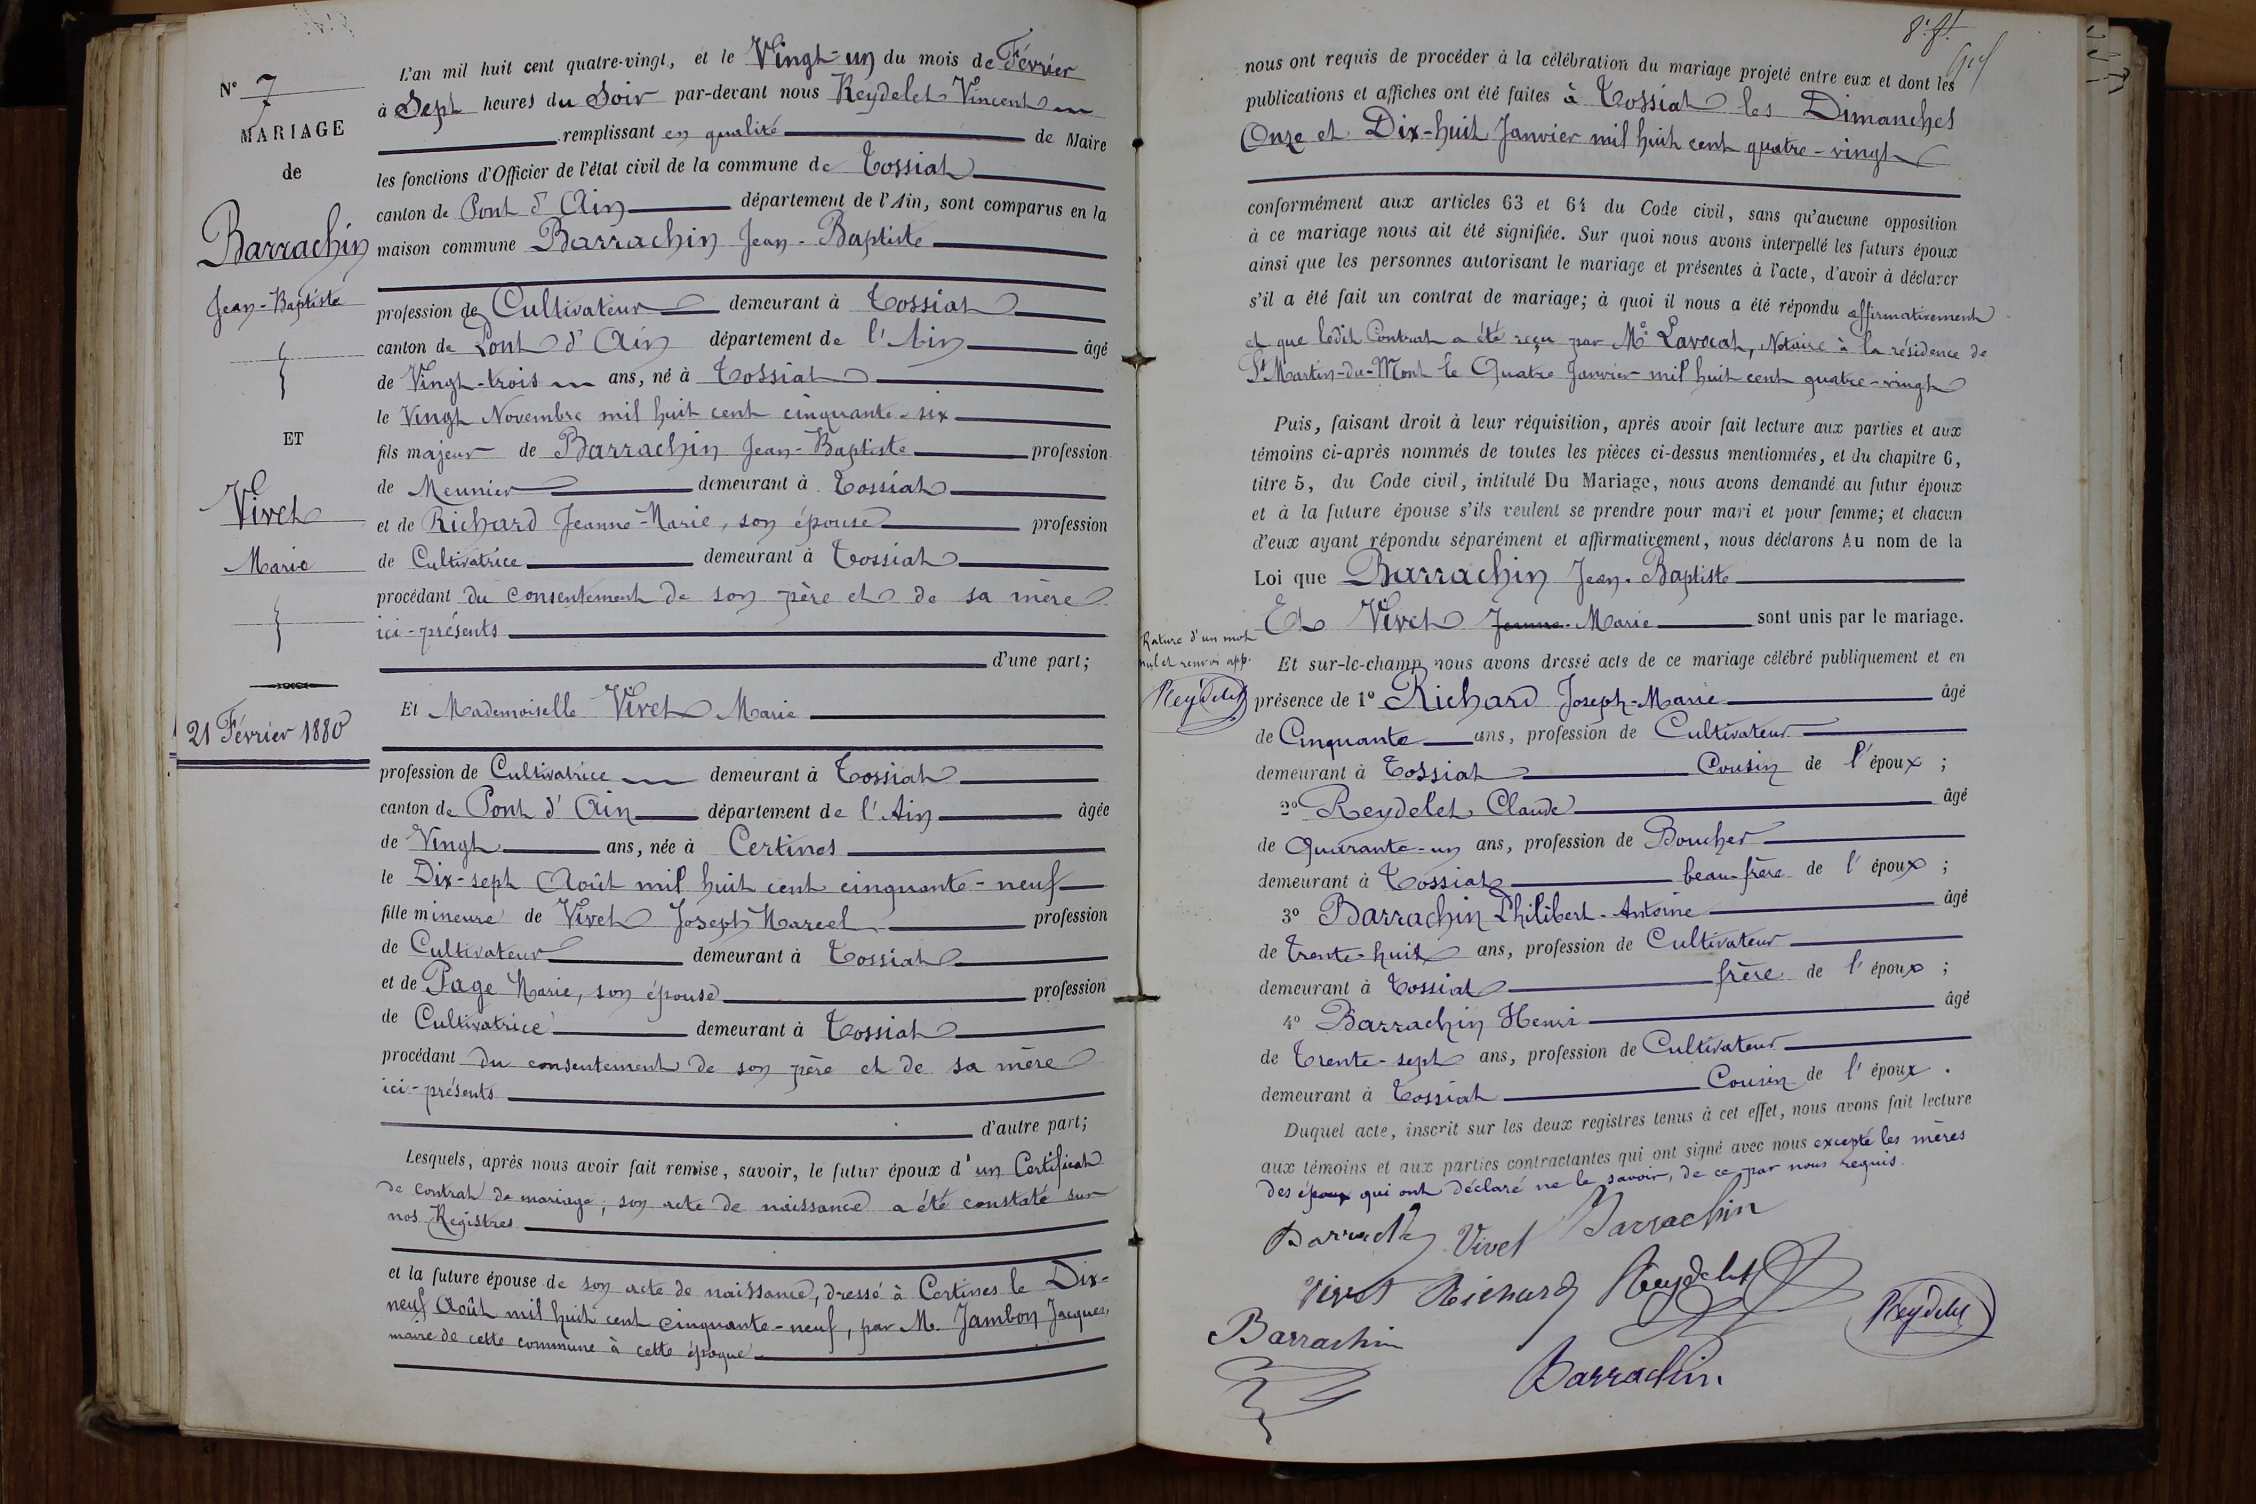 N° 7
MARIAGE
de
Barrachin
Jean-Baptiste
ET
Vivet
Marie
21 Février 1880
L'an mil huit cent quatre-vingt, et le Vingt-un du mois de Février
à Sept heures du Soir par-devant nous Reydelet Vincent
remplissant en qualité de Maire
les fonctions d'Officier de l'état civil de la commune de Tossiat
canton de Pont d'Ain département de l'Ain, sont comparus en la
maison commune Barrachin Jean-Baptiste
profession de Cultivateur demeurant à Tossiat
canton de Pont d'Ain département de l'Ain âgé
de Vingt-trois ans, né à Tossiat
le Vingt Novembre mil huit cent cinquante-six
fils majeur de Barrachin Jean-Baptiste profession
de Meunier demeurant à Tossiat
et de Richard Jeanne-Marie, son épouse profession
de Cultivatrice demeurant à Tossiat
procédant du consentement de son père et de sa mère
ici-présents
d'une part;
Et Mademoiselle Vivet Marie
profession de Cultivatrice demeurant à Tossiat
canton de Pont d'Ain département de l'Ain âgée
de Vingt ans, née à Certines
le Dix-sept Août mil huit cent cinquante-neuf
fille mineure de Vivet Joseph Marcel profession
de Cultivateur demeurant à Tossiat
et de Page Marie, son épouse profession
de Cultivatrice demeurant à Tossiat
procédant du consentement de son père et de sa mère
ici-présents
d'autre part;
Lesquels, après nous avoir fait remise, savoir, le futur époux d'un Certificat
de contrat de mariage; son acte de naissance a été constaté sur
nos Registres
et la future épouse de son acte de naissance, dressé à Certines le Dix-
neuf Août mil huit cent cinquante-neuf, par M. Jambon Jacques,
maire de cette commune à cette époque
nous ont requis de procéder à la célébration du mariage projeté entre eux et dont les
publications et affiches ont été faites à Tossiat les Dimanches
Onze et Dix-huit Janvier mil huit cent quatre-vingt
conformément aux articles 63 et 64 du Code civil, sans qu'aucune opposition
à ce mariage nous ait été signifiée. Sur quoi nous avons interpellé les futurs époux
ainsi que les personnes autorisant le mariage et présentes à l'acte, d'avoir à déclarer
s'il a été fait un contrat de mariage; à quoi il nous a été répondu affirmativement
et que ledit Contrat a été reçu par Me Lavocat, Notaire à la résidence de
St Martin-du-Mont le Quatre Janvier mil huit cent quatre-vingt
Puis, faisant droit à leur réquisition, après avoir fait lecture aux parties et aux
témoins ci-après nommés de toutes les pièces ci-dessus mentionnées, et du chapitre 6,
titre 5, du Code civil, intitulé Du Mariage, nous avons demandé au futur époux
et à la future épouse s'ils veulent se prendre pour mari et pour femme; et chacun
d'eux ayant répondu séparément et affirmativement, nous déclarons Au nom de la
Loi que Barrachin Jean-Baptiste
Et Vivet Jeanne-Marie sont unis par le mariage.
Rature d'un mot
nul et renvoi app.
Reydelet
Et sur-le-champ nous avons dressé acte de ce mariage célébré publiquement et en
présence de 1° Richard Joseph-Marie âgé
de Cinquante ans, profession de Cultivateur
demeurant à Tossiat Cousin de l'époux;
2° Reydelet Claude âgé
de Quarante-un ans, profession de Boucher
demeurant à Tossiat beau-frère de l'époux;
3° Barrachin Philibert-Antoine âgé
de Trente-huit ans, profession de Cultivateur
demeurant à Tossiat frère de l'époux;
4° Barrachin Henri âgé
de Trente-sept ans, profession de Cultivateur
demeurant à Tossiat Cousin de l'époux.
Duquel acte, inscrit sur les deux registres tenus à cet effet, nous avons fait lecture
aux témoins et aux parties contractantes qui ont signé avec nous excepté les mères
des époux qui ont déclaré ne le savoir, de ce par nous requis.
Barrachin Vivet Barrachin
Vivet Richard Reydelet
Reydelet
Barrachin
Barrachin.